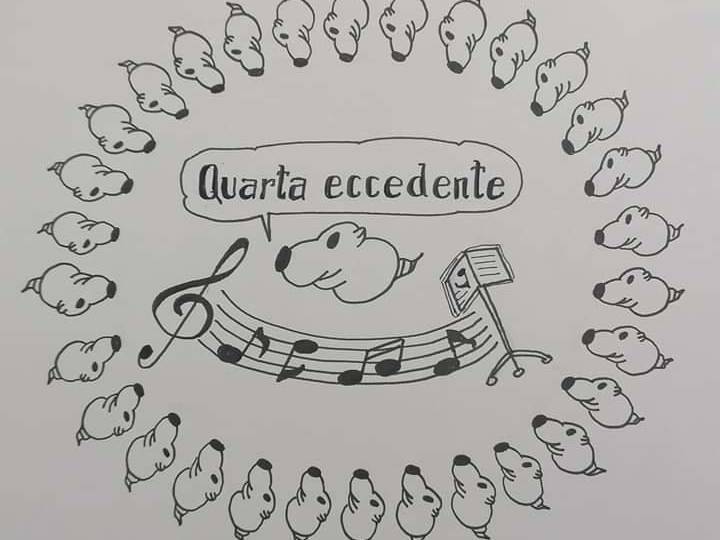 Quarta eccedente